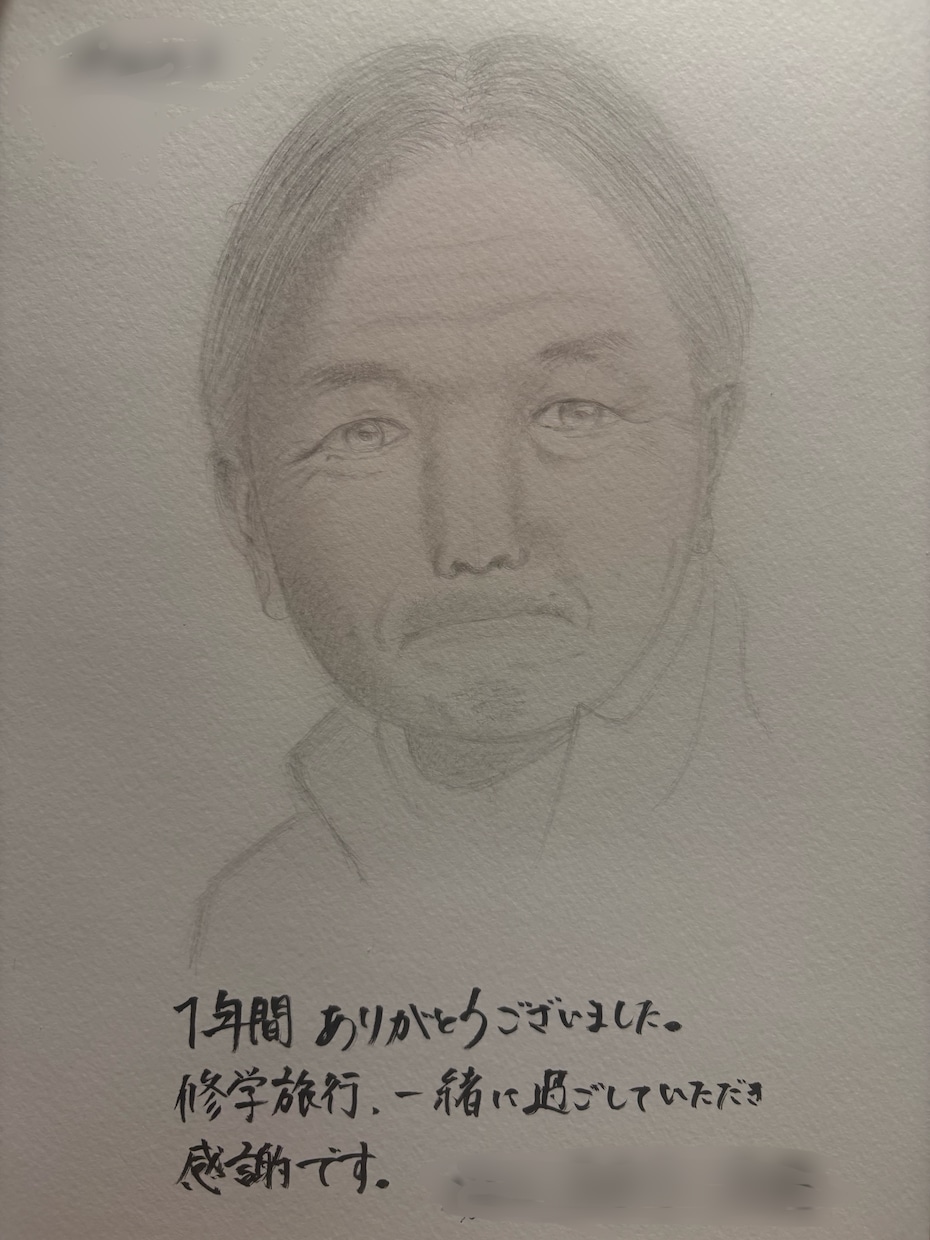 1年間 ありがとうございました。
修学旅行、一緒に過ごしていただき
感謝です。